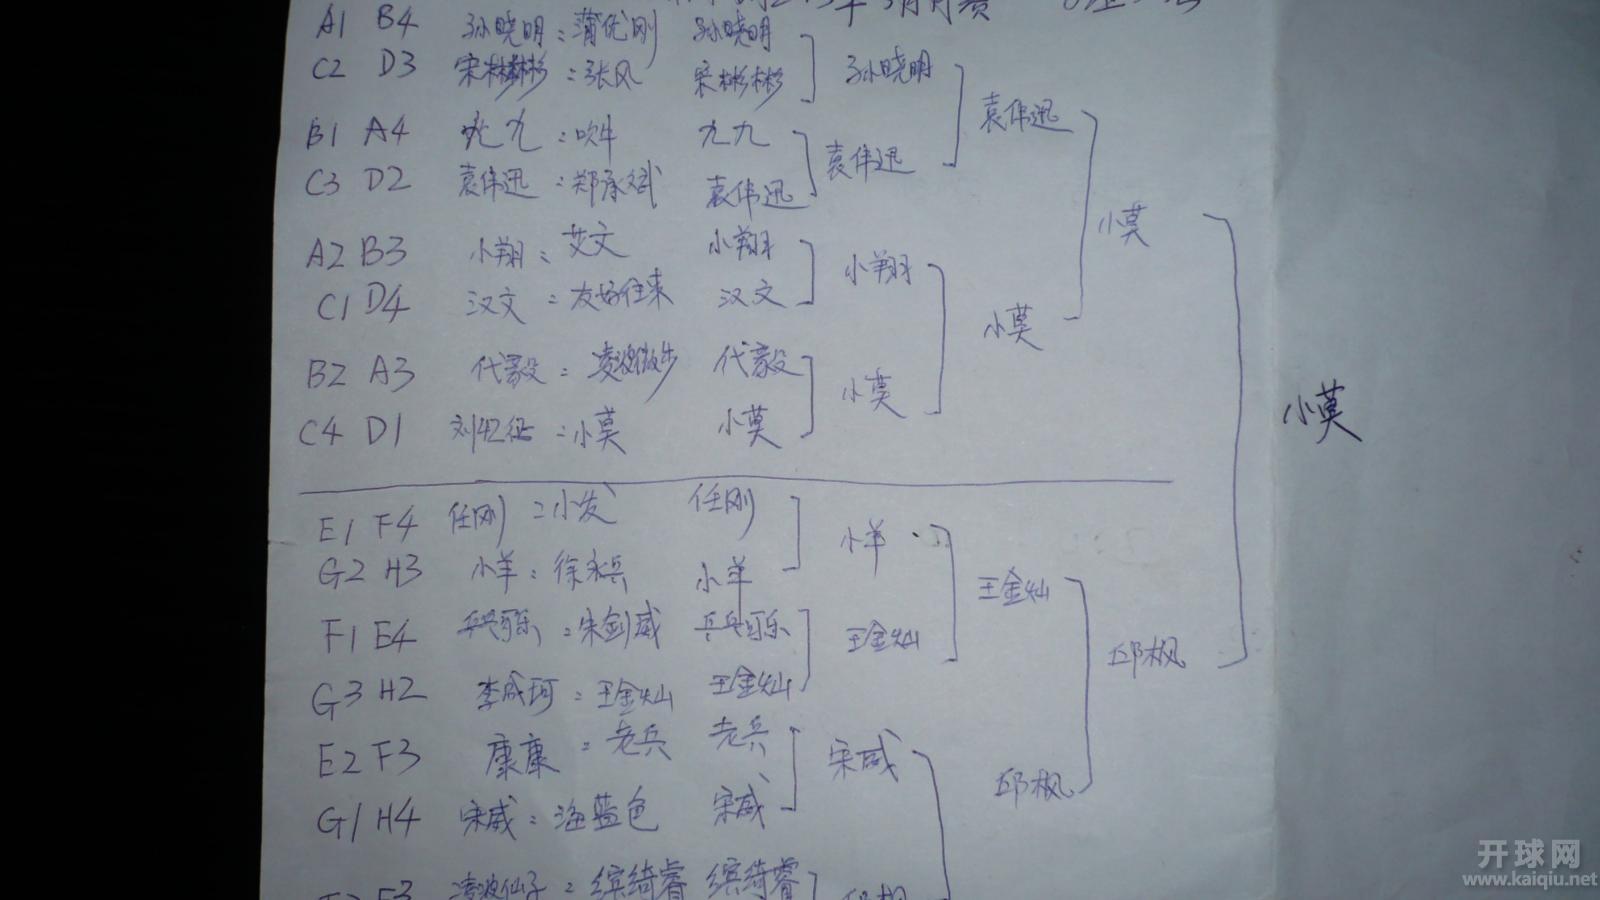 A1 B4 孙晓明：蒲优刚 孙晓明
C2 D3 宋彬彬：张风 宋彬彬 孙晓明
袁伟迅
B1 A4 九：吹牛 九九
袁伟迅
C3 D2 袁伟迅：郑承斌 袁伟迅
小莫
A2 B3 小翔：艾文 小翔
小翔
C1 D4 汉文：友好往来 汉文
小莫
B2 A3 代毅：凌波微步 代毅
小莫
小莫
C4 D1 刘征：小莫 小莫
E1 F4 任刚：小发 任刚
小羊
G2 H3 小羊：徐永兵 小羊
王金灿
F1 E4 乒乓可乐：朱剑威 乒乓可乐
王金灿
邱枫
G3 H2 李成珂：王金灿 王金灿
E2 F3 康康：老兵 老兵
宋威
邱枫
G1 H4 宋威：海蓝色 宋威
凌波仙子：缤绮睿 缤绮睿
邱枫
开球网
www.kaiqiu.net